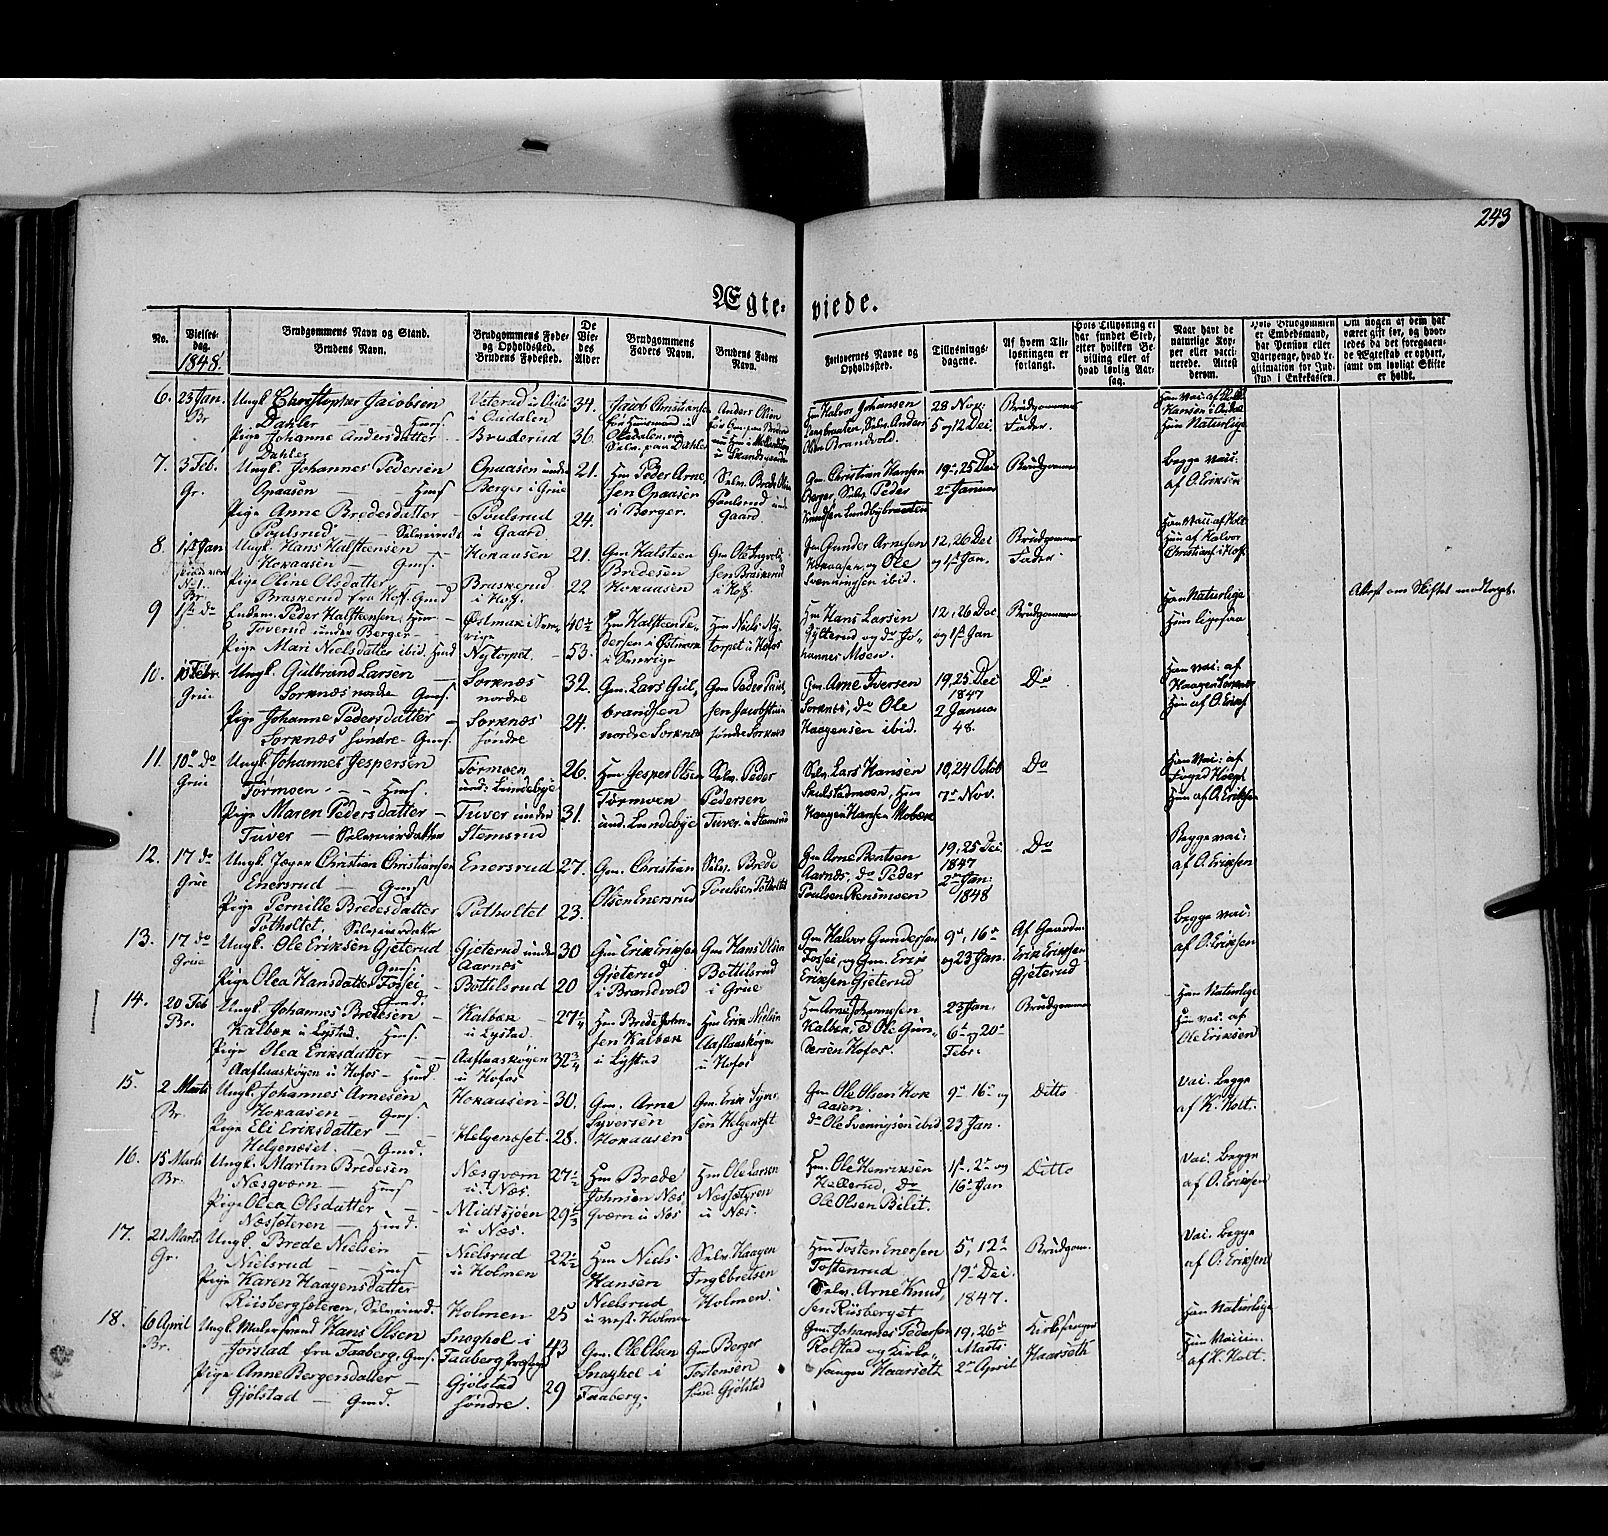 243
Ægte- viede.
No.
Vielses-
dag.
1848.
Brudgommens Navn og Stand.
Brudens Navn.
Brudgommens Føde-
og Opholdsted.
Brudens Fødested.
De
Vie-
des
Alder
Brudgommens
Faders Navn.
Brudens Faders
Navn.
Forlovernes Navne og
Opholdsted.
Tillysnings-
dagene.
Af hvem Til-
lysningen er
forlangt.
Hvis Tillysning ei
har fundet Sted,
efter hvilken Be-
villing eller af
hvad lovlig Aar-
sag.
Naar havt de
naturlige Kop-
per eller vacci-
nerede. Attest
derom.
Hvis Brudgommen
er Embedsmand,
har Pension eller
Vartpenge, hvad Le-
gitimation for Ind-
skud i Enkekassen.
Om nogen af dem har
været gift før, og hvor-
ledes da det foregaaen-
de Ægteskab er ophørt,
samt om lovligt Skifte
er holdt.
6. 23 Jan. Br
Ungk. Christopher Jacobsen
Dahler
Pige Johanne Andersdatter
Dahler
Bruderud
34.
36.
Jacob Christiansen
Anders Olsen
Hm Halvor Johansen
Olsen Brandvold.
28 Nov.
5 og 12 Dei.
Brudgommens
Fader.
Hun Naturlige
7. 3 Feb. Gr.
Ungk. Johannes Pedersen
Opaasen Hmf
Pige Anne Bredesdatter
Poulsrud Selveierd
Opaasen under
Berger i Grue
Poulsrud
u Gaard.
21.
24.
Hm Peder Arne
sen Opaasen
u Berger.
Selv. Brede Olsen
Poulsrud und
Gaard.
Gm. Christian Hansen
Berger, Selv. Peder
Knudsen Lundbybraaten
19, 25 Dei
2 Januar
Brudgommen
Begge vai:
af O. Eriksen
8. 1ste Jan
Br.
Ungk. Hans Halsteensen
Hokaasen Gmf.
Pige Oline Olsdatter
Braskerud fra Hof. Gmd
Hokaasen
Braskerud
i Hof.
21.
22
Gm Halsteen
Bredesen
Hokaasen
Gm Ole Ingvold
sen Braskerud
i Hof.
Gm Gunder Arnesen
Hokaasen, og Ole
Svenningsen ibid.
12, 26 Dei
og 1ste Jan.
Brudgommens
Fader
Han Vaii af Holt
Hun af Halvor
Christians i Hof.
9 1ste do
Enkem. Peder Halsteensen, Hm
Toverud under Berger
Pige Mari Nielsdatter ibid. Hmd
Østmark i Sver-
rige
Nytorpet.
40½
53.
Hm Halsteen Pe-
dersen i Østmark
i Sverrige
Hm Niels Ny-
torpet u Hofos
Hm Hans Larsen
Gylterud og do Jo-
hannes Moen.
12, 26 Dec
og 1ste Jan
Brudgommen
Han Naturlige
Hun ligesaa
Attest om Skiftet medtaget.
10. 10 Febr. Grue
Ungk. Gulbrand Larsen
Sorknæs nordre Gmf.
Pige Johanne Pedersdatter
Sorknæs søndre Gmf.
Sorknæs
nordre
Sorknæs
søndre
32.
24.
Gm. Lars Gul-
brandsen
nordre Sorknæs
Gm Peder Paul-
sen
søndre Sorknæs
Gm. Arne Iversen
Sorknæs, do Ole
Haagensen ibid.
19, 25 Dei
1847
2 Januar
48.
Do
Han vai: af
Haagen Sorknæs
Hun af O. Eriks
11. 10 do Grue
Ungk. Johannes Jespersen
Tørmoen Hmf.
Pige Maren Pedersdatter
Tuver Selveierdatter
Tørmoen
und: Lundebye
Tuver under
Stemsrud
26.
31.
Hm Jesper Olsen
Tørmoen
und. Lundebye
Selv. Peder
Pedersen
Tuver. u Stemsrud
Selv. Lars Hansen
Skulstadmoen, Hm
Haagen Hansen Mobæk
10, 24 Octob
7 Nov.
Do
Han vai: af
Hun af O. Eriksen
12. 17 do Grue
Ungk. Jøgen Christian Christiansen
Enersrud Gmf
Pige Pernille Bredesdatter
Potholtet Selveierdatter
Enersrud
Potholtet
27.
23.
Gm. Christian
Olsen Enersrud
Selv. Brede
Poulsen Potholtet
Gm Arne Bentsen
Aarnæs, do Peder
Poulsen Rensmoen
19, 25 Dei
1847
2 Jan.
1848
Do
Begge vai:
af O. Eriksen
13. 17 do Grue
Ungk. Ole Eriksen Gjeterud
Gmf.
Pige Olea Hansdatter Fossei
Gmd.
Gjeterud under
Aarnæs
Bottilsrud
30
20
Gm Erik Eriksen
Gjeterud
i Brandvold
Gm Hans Olsen
Bottilsrud
i Grue
Gm Halvor Gundersen
Fossei, og Gm. Erik
Eriksen Gjeterud
9, 16
og 23 Jan.
Af Gaardm.
Erik Eriksen
Gjeterud
Begge vai:
af O. Eriksen
14. 20 Feb Br.
Ungk. Johannes Bredesen
Kalbek u Lystad. Hmf.
Pige Olea Eriksdatter
Aaflaaskøyen u Hofos Hmd.
Kalbek
u Lystad
Aaflaaskøyen
u Hofos
27¼
32¾
Hm Brede John-
sen Kalbek
u Lystad
Hm Erik Nielsen
Aaflaaskøyen
u Hofos
Hm Arne Johannesen
Kalbek, do Ole Gun-
dersen Hofos.
23 Jan.
6 og 20
Febr.
Brudgommen
Han Naturlige
Hun vai. af
Ole Eriksen
15. 2 Marts Br.
Ungk. Johannes Arnesen
Hokaasen Gmf.
Pige Eli Eriksdatter
Helgenæset. Gmd.
Hokaasen
Helgenæset.
30.
28.
Gm. Arne
Syversen
Hokaasen
Gm. Erik Syver-
sen Helgenæset
Gm Ole Olsen Hok
aasen.
do Ole Svenningsen ibid
9, 16 og
23 Jan.
Ditto
Vai. Begge
af K. Holt.
16. 15 Marts Br.
Ungk. Martin Bredesen
Næsqværn Hmf
Pige Olea Olsdatter
Næssæteren Hmd.
Næsqværn
u. Næs.
Midtsjøen
u Næs.
27½
29⅓
Hm Brede
Johnsen Næs
qværn u Næs
Hm Ole Larsen
Næssæteren
u Næs.
Hm. Ole Henriksen
Hellerud, do
Ole Olsen Bilit.
1ste, 2 og
16 Jan
Ditto
Vai. Begge
af O. Eriksen
17. 21 Marts Gr.
Ungk. Brede Nielsen
Nielsrud Hmf
Pige Karen Haagensdatter
Riisbergsæteren, Selveierd.
Nielsrud
u Holmen
Holmen
22½
25
Hm Niels
Hansen
Nielsrud
u vest. Holmen
Selv. Haagen
Ingebretsen
Holmen
Hm Tosten Enersen
Tostenrud
Selv. Arne Knud
sen Riisberget
5, 12
19 Dei.
1847.
Brudgom.
Vai. Begge
af O. Eriksen
18. 6 April Br.
Ungk. Malersvend Hans Olsen
Jørstad fra Faaberg. Gmf.
Pige Anne Bergersdatter
Gjølstad Gmd.
Snoghol i
Faaberg Præstegd
Gjølstad
søndre.
43
29
Gm. Ole Olsen
Snoghol i
Faaberg.
Gm Berger
Tostensen
sønd. Gjølstad
Gm. Johannes Pedersen
Rolstad og Kirke-
sanger Haarseth
19, 26
Marts
2 April
Kirkesanger
Haarseth
Han Naturlige
Hun Vaccin.
af K. Holt.